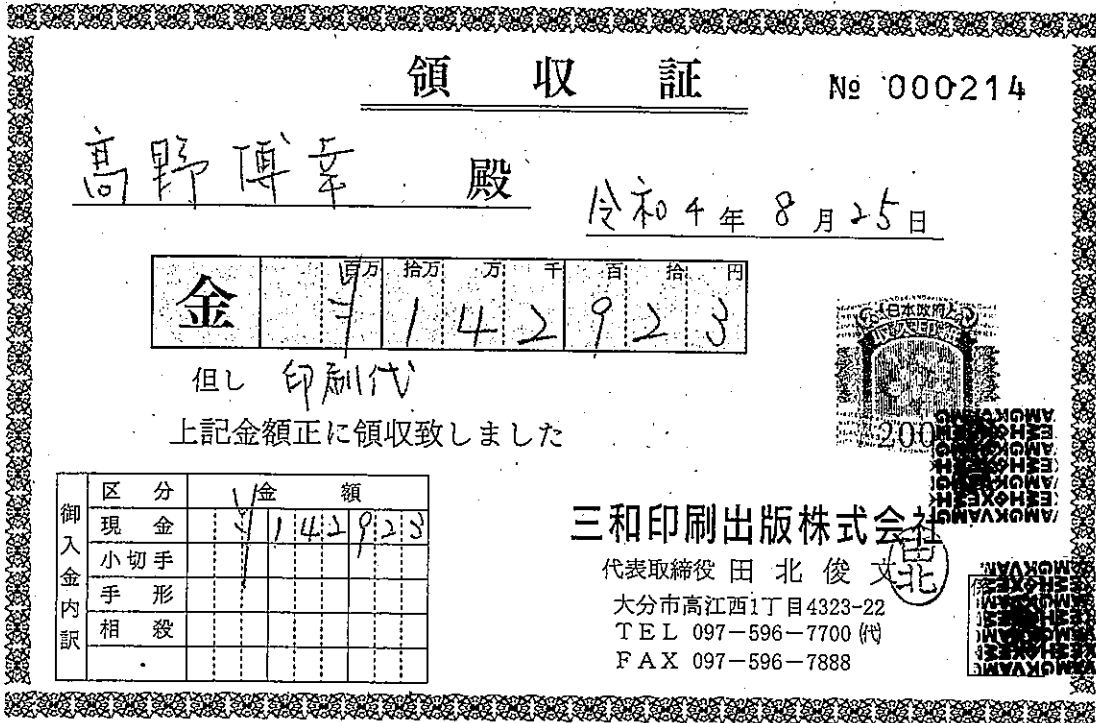 領収証 № 000214
髙野博幸 殿
令和4年8月25日
百万 拾万 万 千 百 拾 円
金 ¥142923
但し 印刷代
上記金額正に領収致しました
日本政府
200
御入金内訳
区分 金額
現金 ¥142923
小切手
手形
相殺
三和印刷出版株式会社
代表取締役 田北俊文
田北
大分市高江西1丁目4323-22
TEL 097-596-7700 ㈹
FAX 097-596-7888